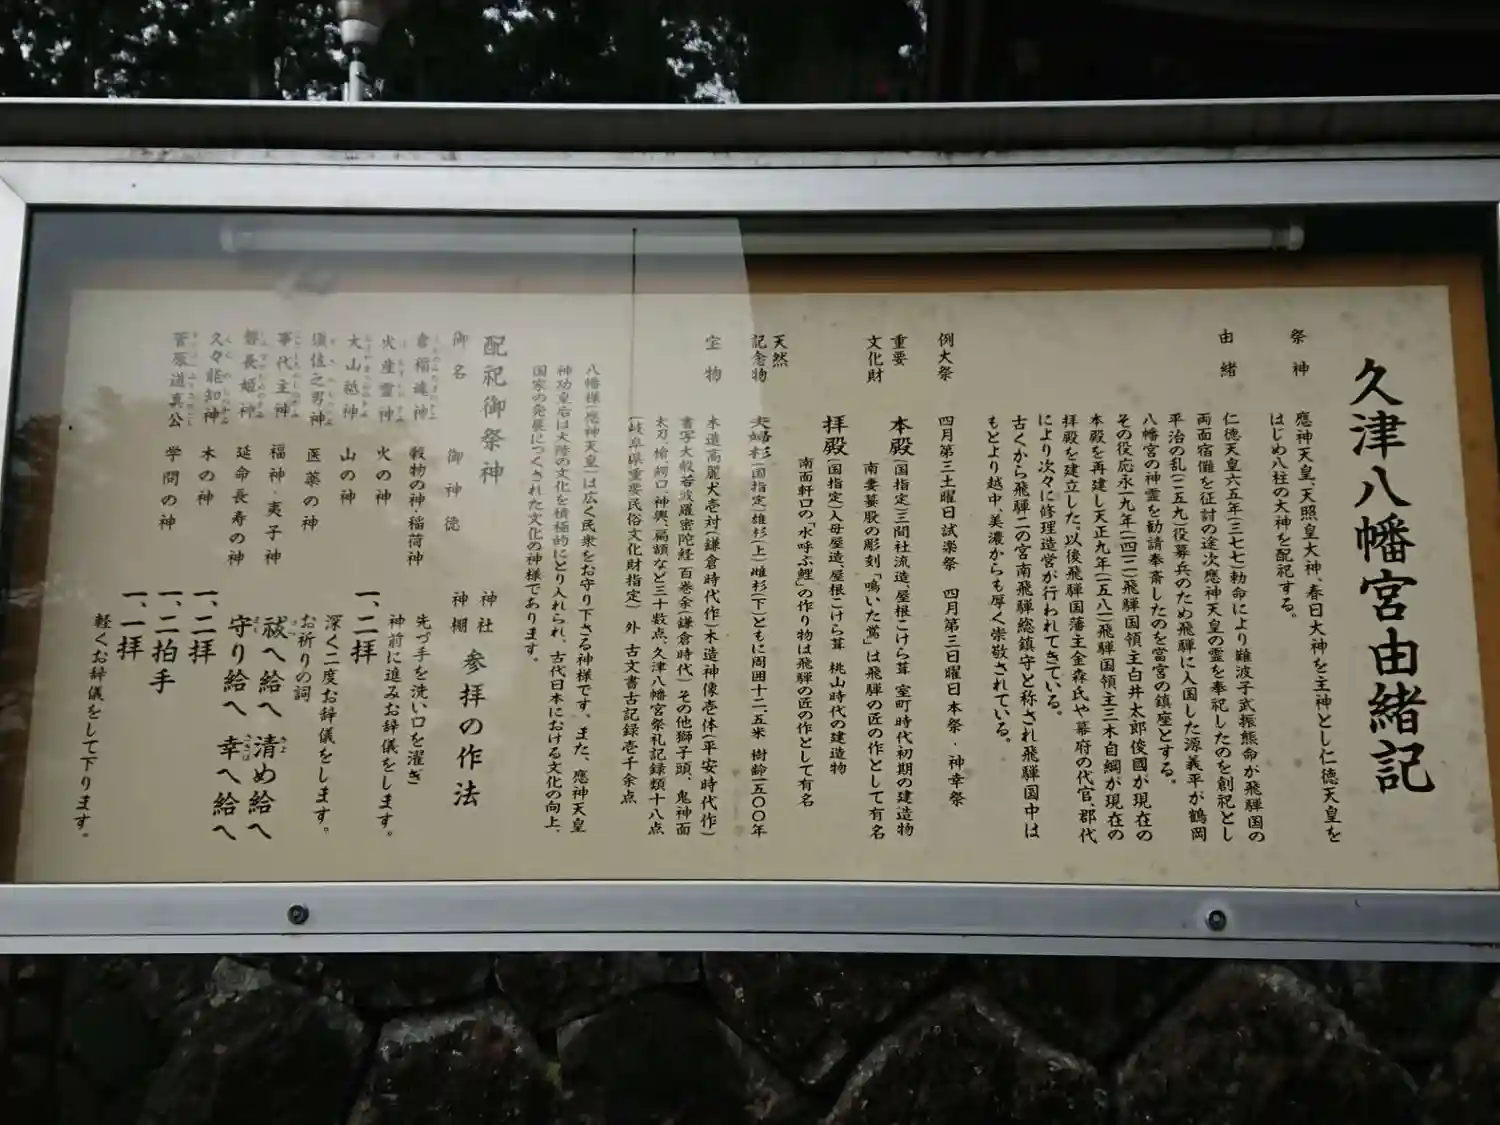 久津八幡宮由緒記
祭神
應神天皇、天照皇大神、春日大神を主神とし仁徳天皇を
はじめ八柱の大神を配祀する。
由緒
仁徳天皇六五年(三七七)勅命により難波子武振熊命が飛騨国の
両面宿儺を征討の途次應神天皇の霊を奉祀したのを創祀とし
平治の乱(一一五九)役募兵のため飛騨に入国した源義平が鶴岡
八幡宮の神霊を勧請奉斎したのを當宮の鎮座とする。
その役応永一九年(一四一二)飛騨国領主白井太郎俊國が現在の
本殿を再建し天正九年(一五八一)飛騨国領主三木自綱が現在の
拝殿を建立した。以後飛騨国藩主金森氏や幕府の代官、郡代
により次々に修理造営が行われてきている。
古くから飛騨二の宮南飛騨総鎮守と称され飛騨国中は
もとより越中、美濃からも厚く崇敬されている。
例大祭
四月第三土曜日試楽祭 四月第三日曜日本祭・神幸祭
重要
文化財
本殿(国指定)三間社流造、屋根こけら葺 室町時代初期の建造物
南妻蟇股の彫刻「鳴いた鴬」は飛騨の匠の作として有名
拝殿(国指定)入母屋造、屋根こけら葺 桃山時代の建造物
南面軒口の「水呼ぶ鯉」の作り物は飛騨の匠の作として有名
天然
記念物
夫婦杉(国指定)雄杉(上)雌杉(下)ともに周囲十二、五米 樹齢一五〇〇年
宝物
木造高麗犬壱対(鎌倉時代作)木造神像壱体(平安時代作)
書写大般若波羅密陀経一百巻余(鎌倉時代)その他獅子頭、鬼神面
太刀、槍、鰐口、神輿、扁額など三十数点、久津八幡宮祭礼記録類十八点
(岐阜県重要民俗文化財指定) 外 古文書古記録壱千余点
八幡様(應神天皇)は広く民衆をお守り下さる神様です、また、應神天皇
神功皇后は大陸の文化を積極的にとり入れられ、古代日本における文化の向上、
国家の発展につくされた文化の神様であります。
配祀御祭神
御名 御神徳
倉稲魂神 穀物の神・稲荷神
火産霊神 火の神
大山祗神 山の神
須佐之男神 医薬の神
事代主神 福神・夷子神
磐長姫神 延命長寿の神
久々能知神 木の神
菅原道真公 学問の神
神社
神棚
参拝の作法
先づ手を洗い口を濯ぎ
神前に進みお辞儀をします。
一、二拝
深く二度お辞儀をします。
お祈りの詞
祓へ給へ 清め給へ
守り給へ 幸へ給へ
一、二拝
一、二拍手
一、一拝
軽くお辞儀をして下ります。